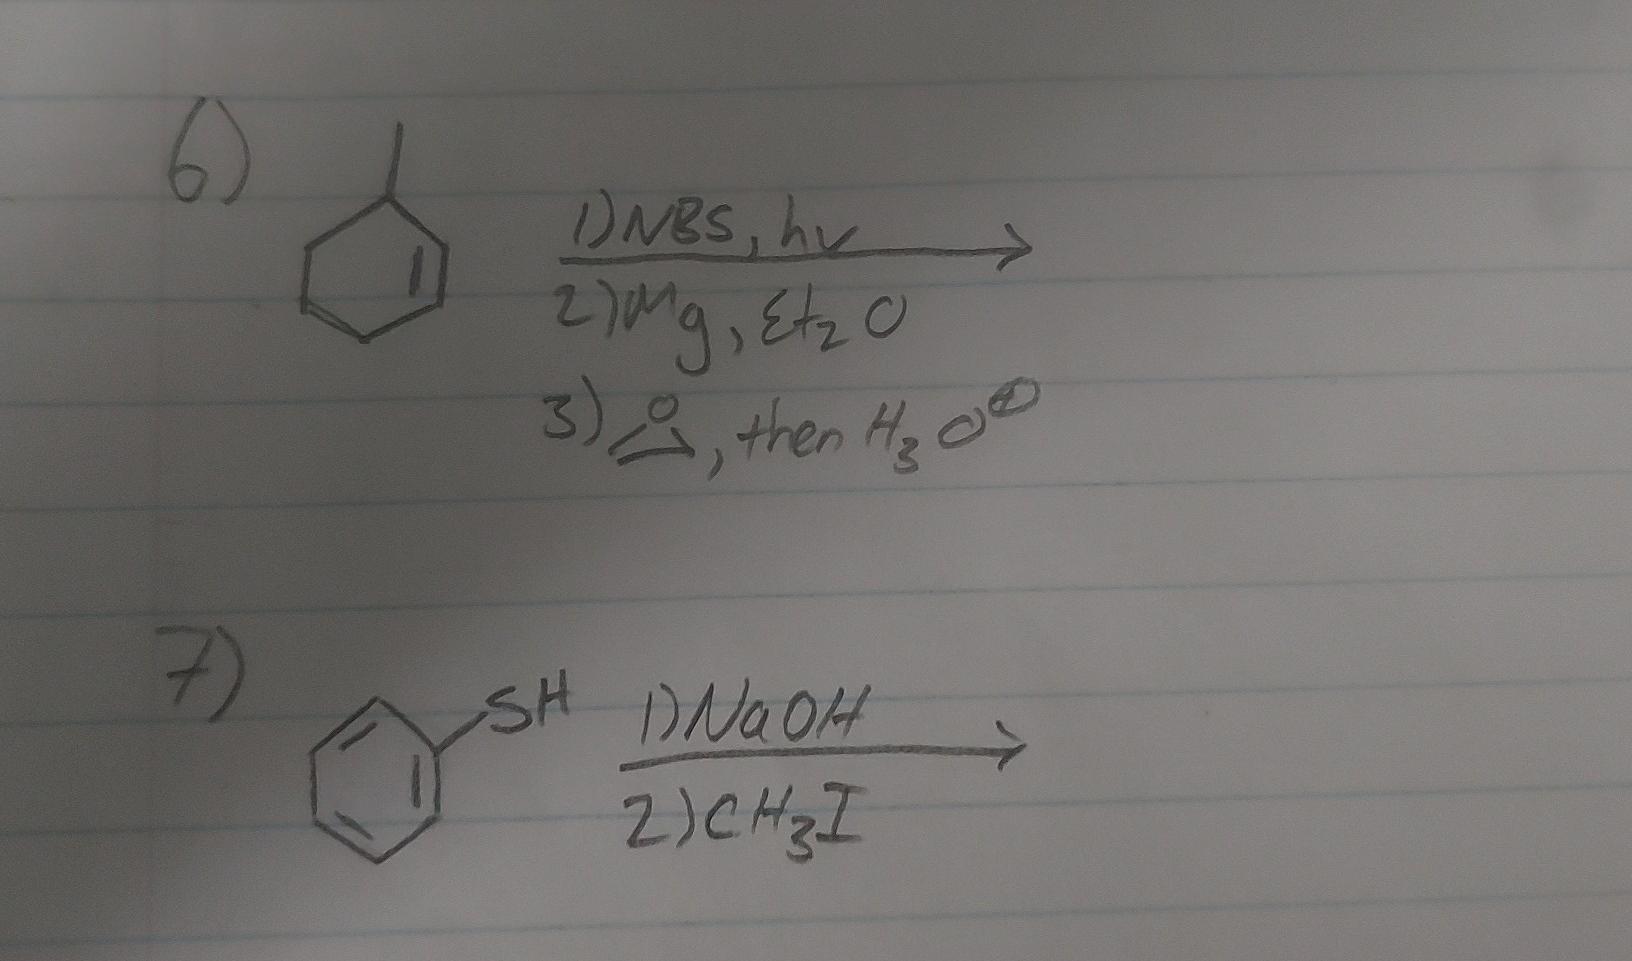 6)
1) NBS, hv
2) Mg, Et₂O
3) O, then H₃O⊕
7)
SH
1) NaOH
2) CH₃I